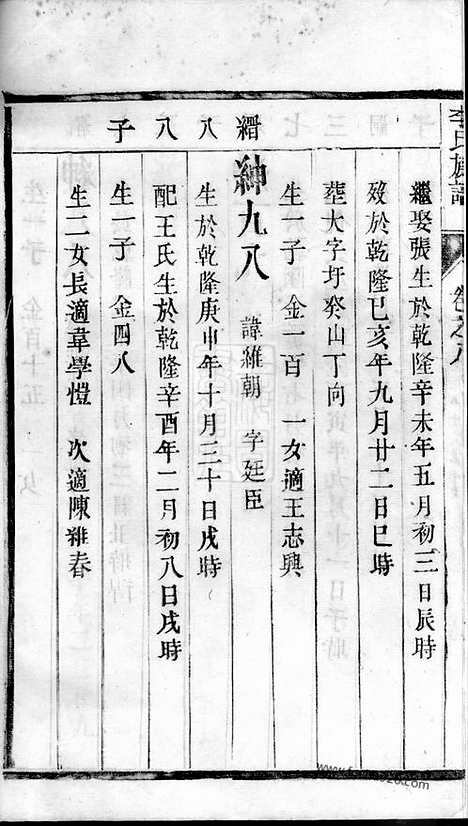 李氏族譜 卷之八
繼娶張生於乾隆辛未年五月初三日辰時
歿於乾隆己亥年九月廿二日巳時
塟大字圩癸山丁向
生一子 金一百 一女適王志興
縉 紳九八 諱維朝 字廷臣
八 生於乾隆庚申年十月三十日戌時
八 配王氏生於乾隆辛酉年二月初八日戌時
子 生一子 金四八
生二女長適韋學愷 次適陳維春